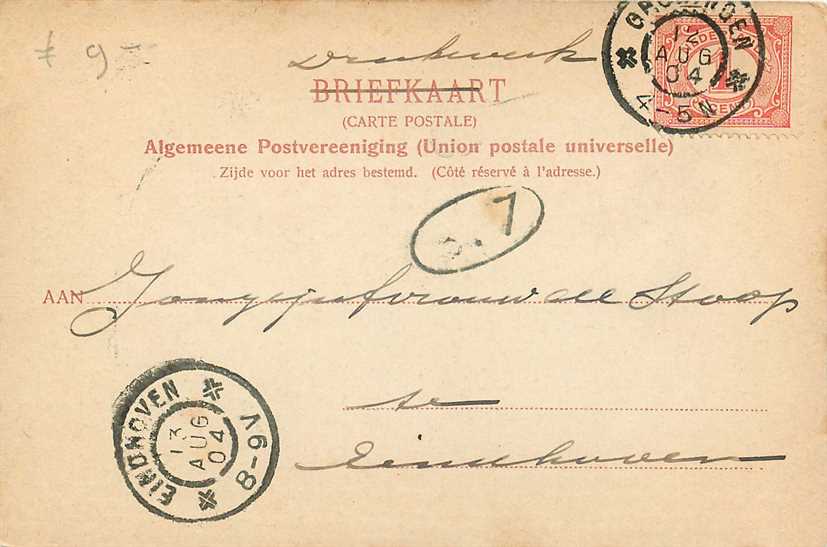 f 9 -
Drukwerk
BRIEFKAART
(CARTE POSTALE)
Algemeene Postvereeniging (Union postale universelle)
Zijde voor het adres bestemd. (Côté réservé à l'adresse.)
12
AUG
04
4-5N
1
CENT
7
AAN Jongejufvrouw de Stoop
te
Eindhoven
EINDHOVEN
13
AUG
04
8-9V